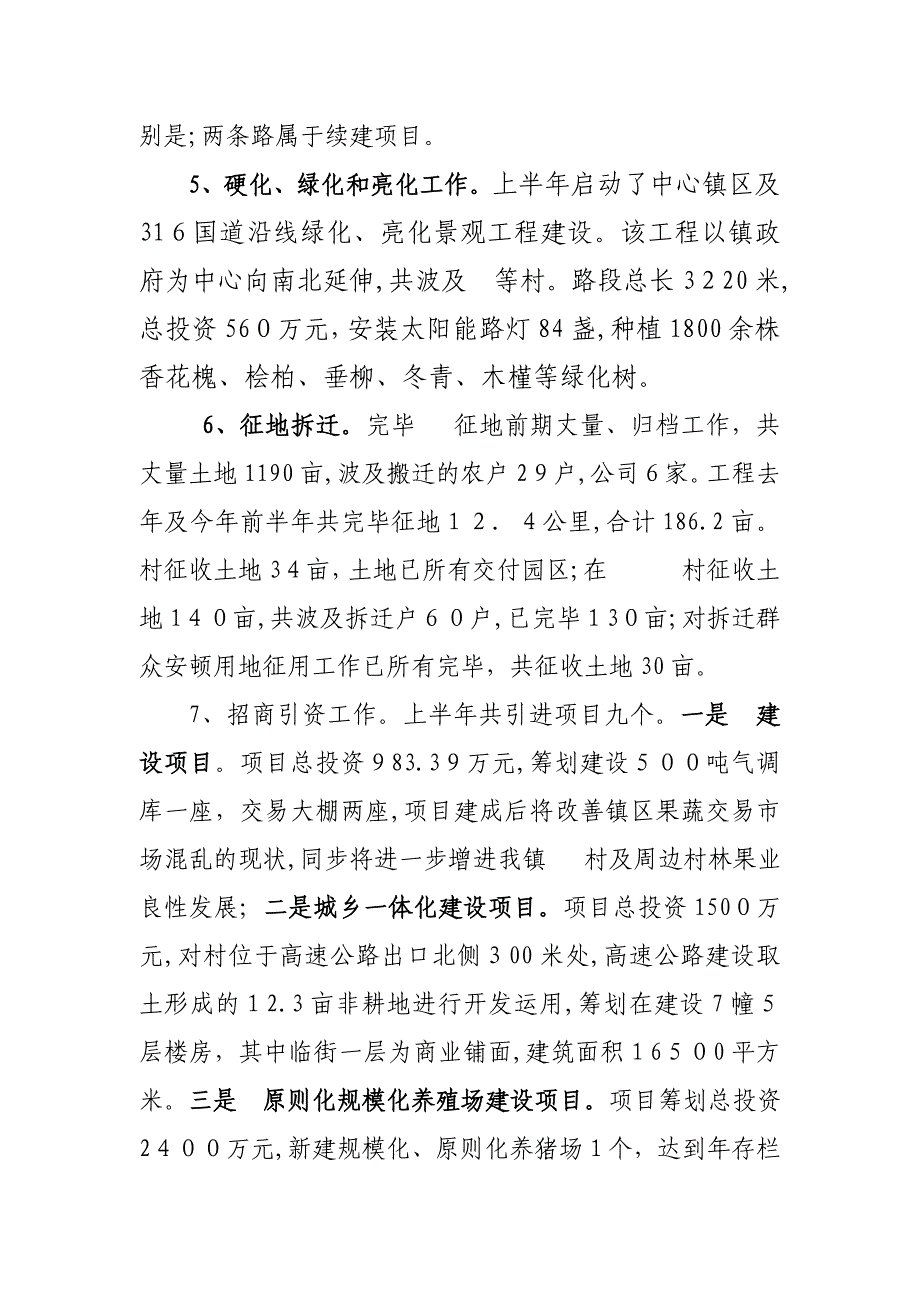 别是;两条路属于续建项目。
5、硬化、绿化和亮化工作。上半年启动了中心镇区及
316国道沿线绿化、亮化景观工程建设。该工程以镇政
府为中心向南北延伸,共波及　等村。路段总长3220米,
总投资560万元,安装太阳能路灯84盏,种植1800余株
香花槐、桧柏、垂柳、冬青、木槿等绿化树。
6、征地拆迁。完毕　　征地前期丈量、归档工作，共
丈量土地1190亩,波及搬迁的农户29户,公司6家。工程去
年及今年前半年共完毕征地１２．４公里,合计186.2亩。
村征收土地34亩,土地已所有交付园区;在　　　村征收土
地140亩,共波及拆迁户６０户,已完毕130亩;对拆迁群
众安顿用地征用工作已所有完毕，共征收土地30亩。
7、招商引资工作。上半年共引进项目九个。一是　建
设项目。项目总投资983.39万元,筹划建设５００吨气调
库一座，交易大棚两座,项目建成后将改善镇区果蔬交易市
场混乱的现状,同步将进一步增进我镇　　村及周边村林果业
良性发展；二是城乡一体化建设项目。项目总投资1500万
元,对村位于高速公路出口北侧300米处,高速公路建设取
土形成的12.3亩非耕地进行开发运用,筹划在建设7幢5
层楼房，其中临街一层为商业铺面,建筑面积16500平方
米。三是　原则化规模化养殖场建设项目。项目筹划总投资
2400万元,新建规模化、原则化养猪场1个，达到年存栏